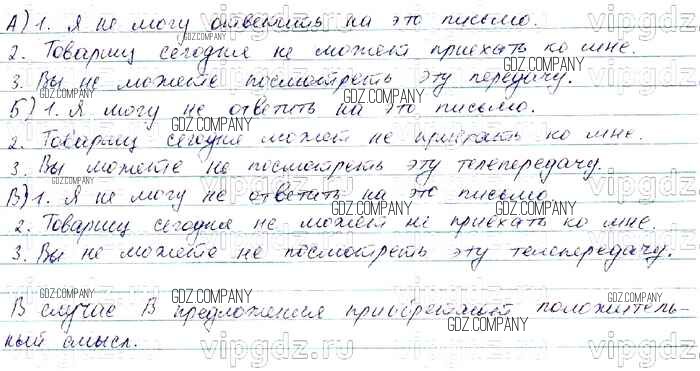 А) 1. Я не могу ответить на это письмо.
2. Товарищ сегодня не может приехать ко мне.
3. Вы не можете посмотреть эту передачу.
Б) 1. Я могу не ответить на это письмо.
2. Товарищ сегодня может не приехать ко мне.
3. Вы можете не посмотреть эту телепередачу.
В) 1. Я не могу не ответить на это письмо
2. Товарищ сегодня не может не приехать ко мне.
3. Вы не можете не посмотреть эту телепередачу.
В случае В предложения приобретают положитель-
ный смысл.
GDZ.COMPANY
GDZ.COMPANY
GDZ.COMPANY
GDZ.COMPANY
GDZ.COMPANY
GDZ.COMPANY
GDZ.COMPANY
GDZ.COMPANY
GDZ.COMPANY
GDZ.COMPANY
GDZ.COMPANY
vipgdz.ru
vipgdz.ru